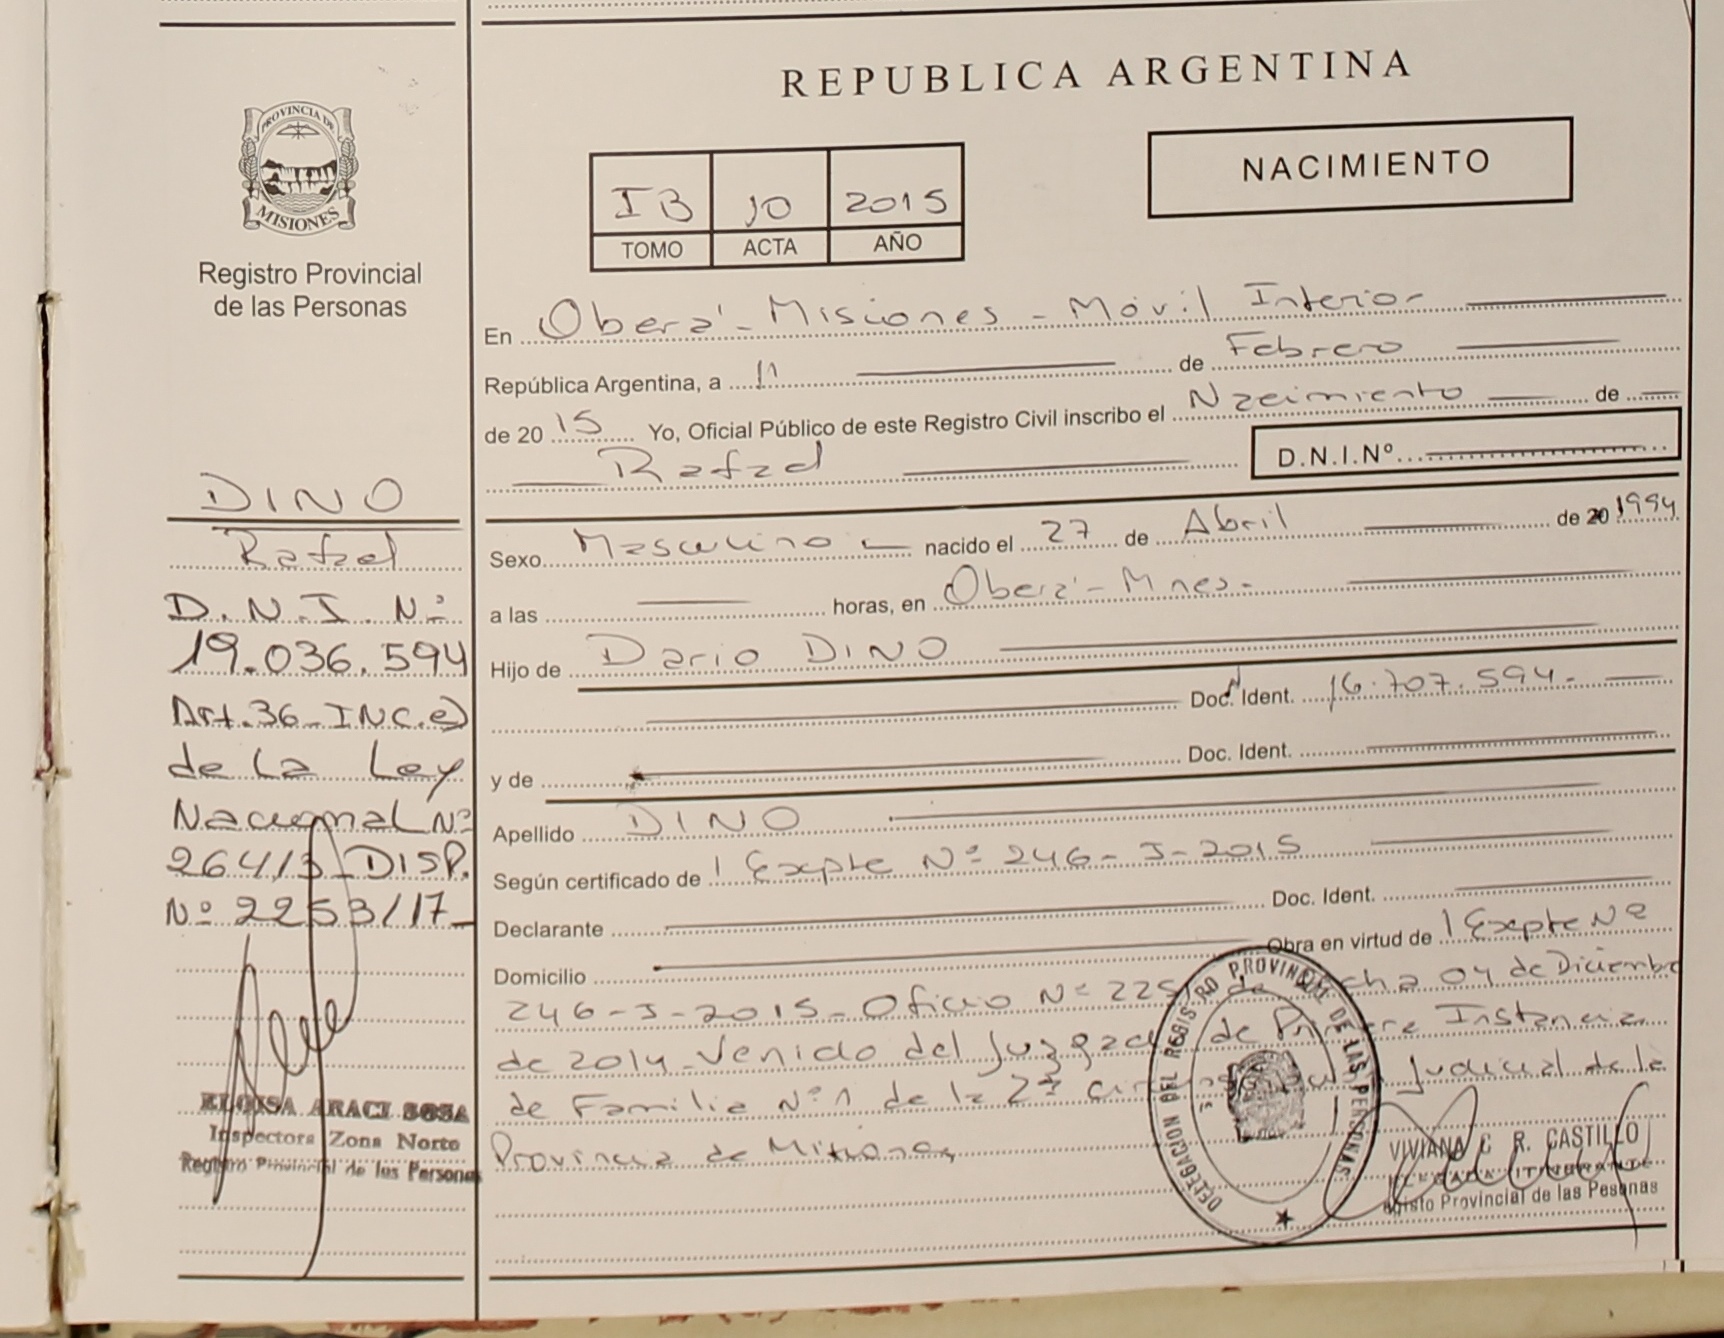 PROVINCIA DE
MISIONES
Registro Provincial
de las Personas
DINO
Rafael
D.N.I. Nº
19.036.594
Art. 36 - INC. e)
de la Ley
Nacional Nº
26413 - DISP.
Nº 2253/17 -
ELOISA ARACI SOSA
Inspectora Zona Norte
Registro Provincial de las Personas
REPUBLICA ARGENTINA
NACIMIENTO
IB 10 2015
TOMO ACTA AÑO
En Oberá - Misiones - Móvil Interior
República Argentina, a 11 de Febrero
de 2015 Yo, Oficial Público de este Registro Civil inscribo el Nacimiento de
Rafael D.N.I.Nº
Sexo Masculino nacido el 27 de Abril de 20 1994
a las horas, en Oberá - Mnes.
Hijo de Dario DINO
Doc. Ident. 16.707.594.-
y de Doc. Ident.
Apellido DINO
Según certificado de Expte Nº 246 - J - 2015
Declarante Doc. Ident.
Domicilio Obra en virtud de Expte Nº
246 - J - 2015 - Oficio Nº 225 de fecha 04 de Diciembre
de 2014 - Venido del Juzgado de Primera Instancia
de Familia Nº 1 de la 2ª Judicial de la
Provincia de Misiones
DELEGACION DEL REGISTRO PROVINCIAL DE LAS PERSONAS
VIVIANA C. R. CASTILLO
Registo Provincial de las Pesonas